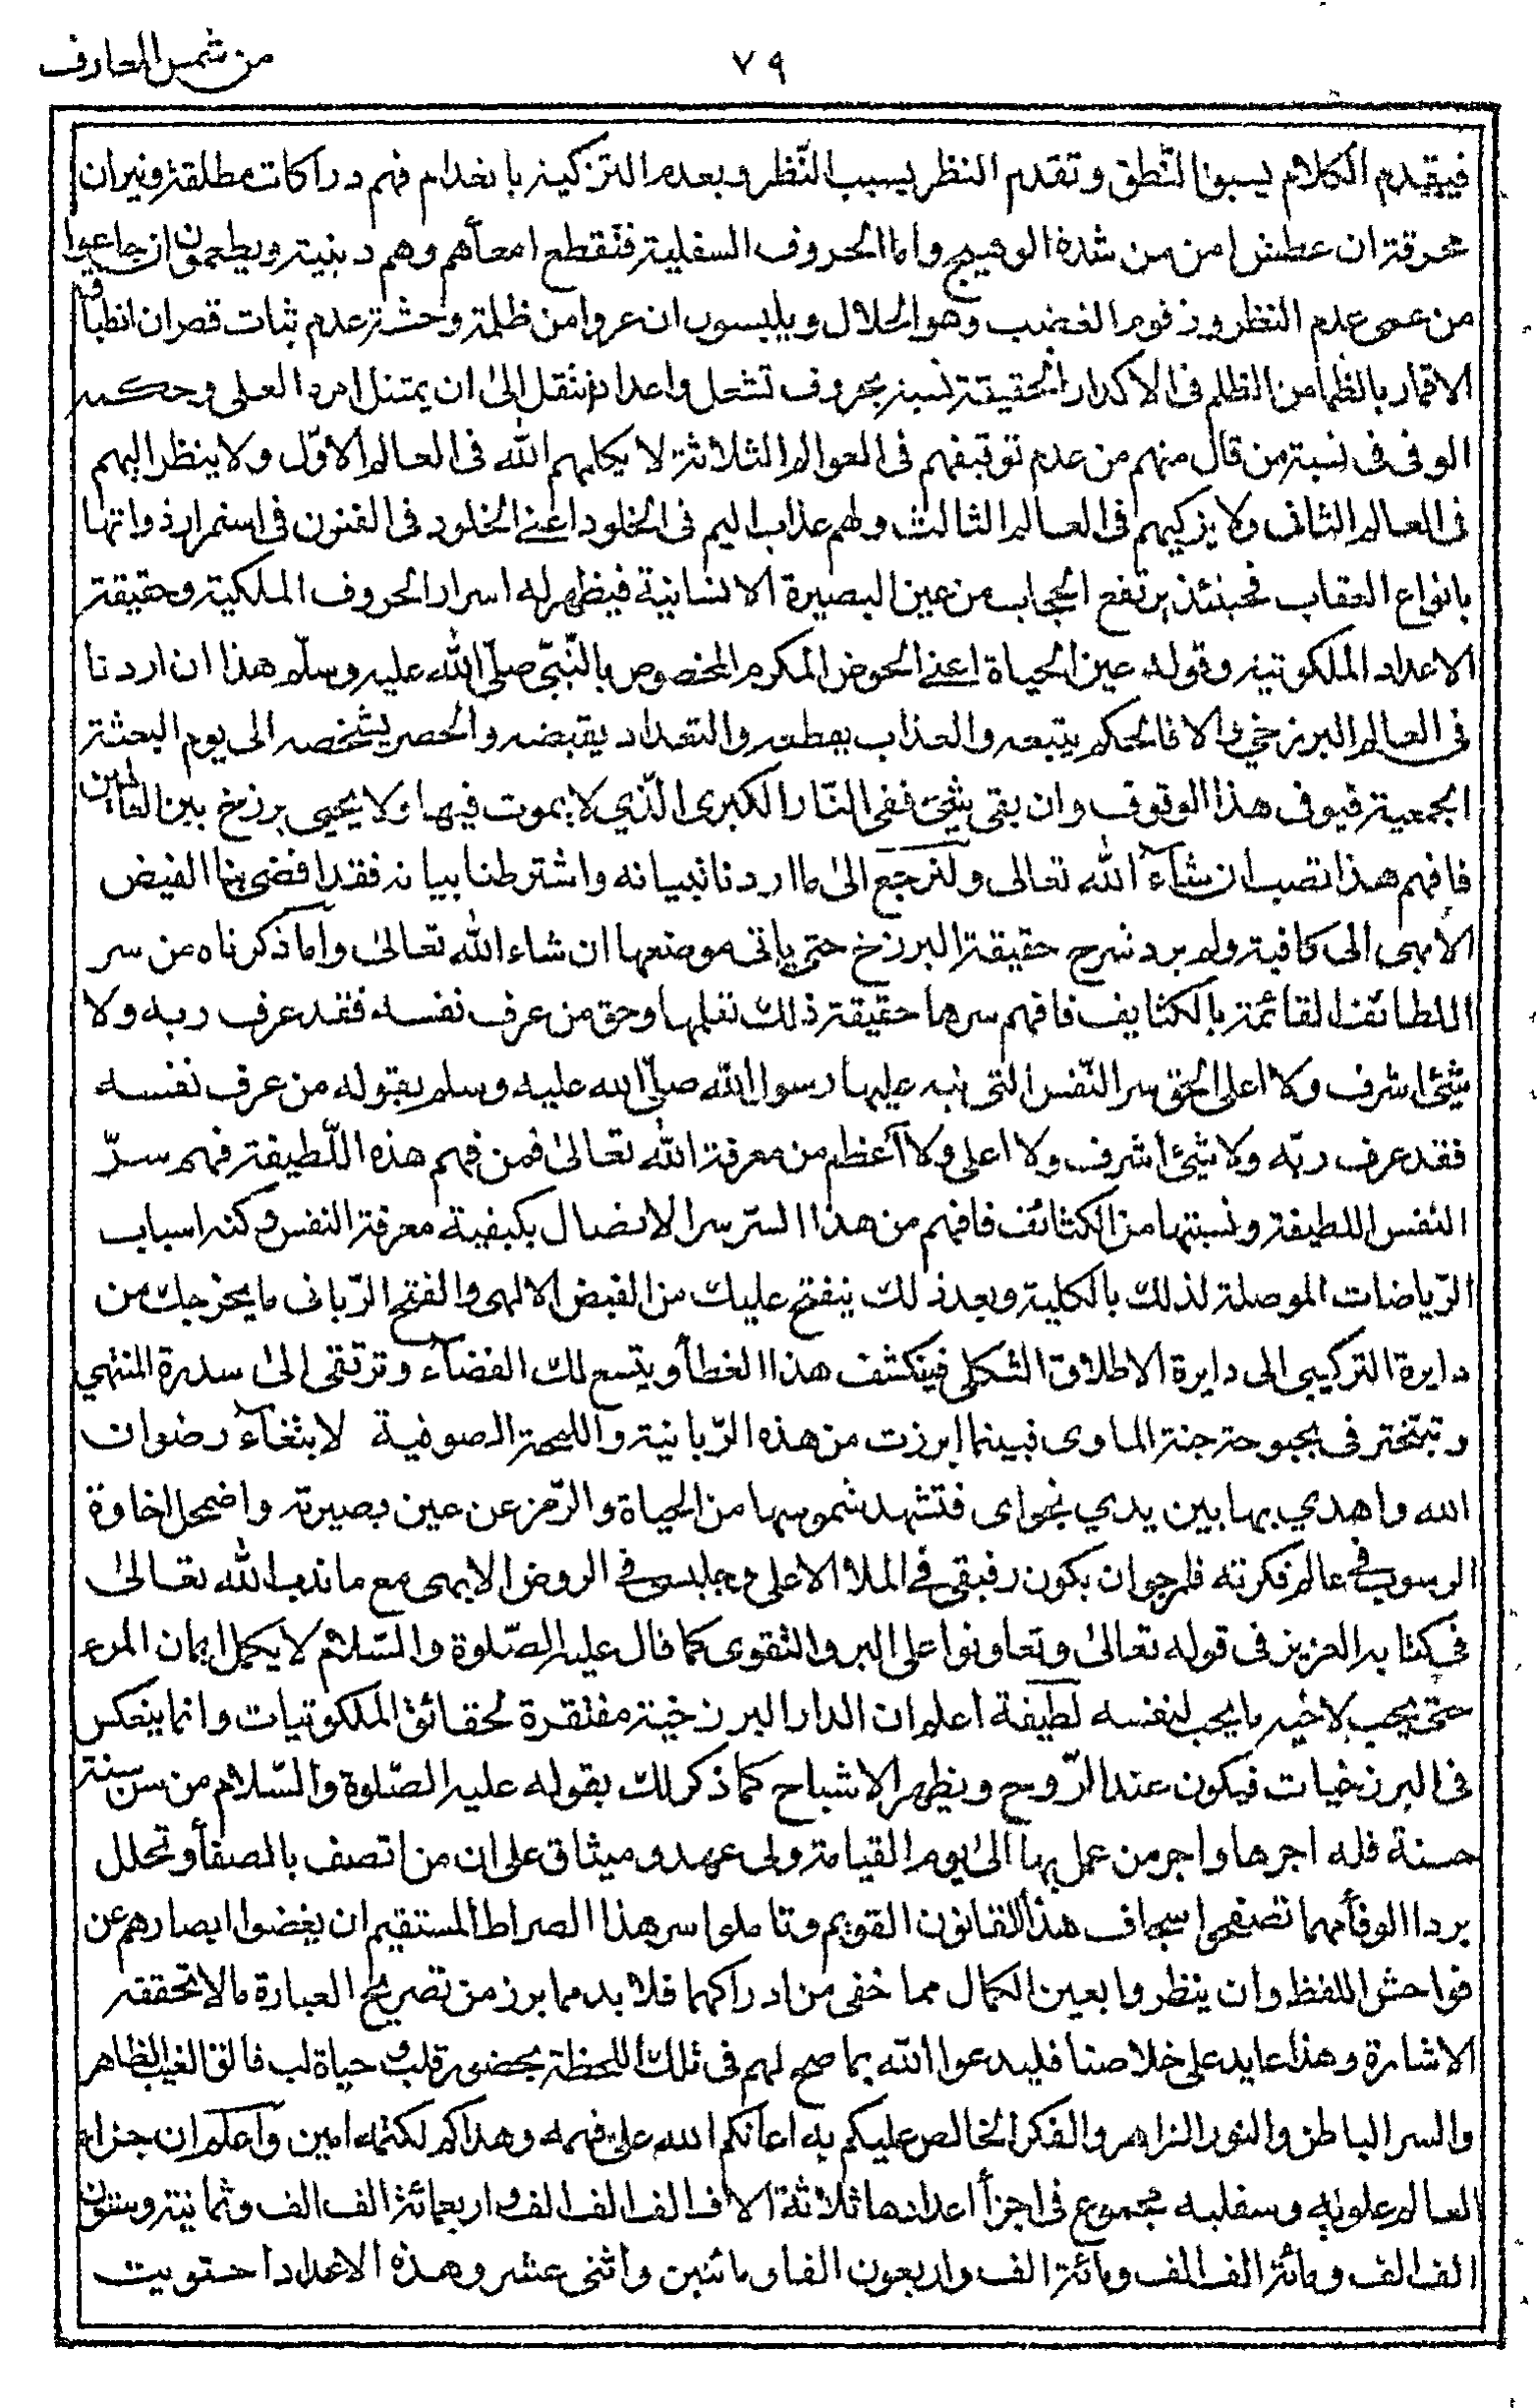 ٧٩
من شمس المعارف
فيقدم الكلام يسبق النّطق وتقدم النظر بسبب النّظر وبعدم التزكية بانخدام فهم دراكات مطلقة ونيران
محرقة ان عطش امن من شدة الوهيج واما الحروف السفلية فتقطع امعآهم وهم دبنية ويطعمون ان جاعوا
من عمى عدم النظر وزقوم الغضب وهو الحلال ويلبسون ان عروا من ظلمة وحشة عدم ثبات قصران انطباقه
الاقمار بالظما من الظلم فى الاكدار الحقيقة نسبة بحروف تشعل واعداد تنتقل الىٰ ان يمتثل امره العلى وحكمه
الوفى فى نسبة من قال منهم من عدم توقيفهم فى العوالم الثلاثة لا يكلمهم الله فى العالم الاوّل ولا ينظر اليهم
فى العالم الثانى ولا يزكيهم فى العالم الثالث ولهم عذاب اليم فى الخلود اعنے الخلود فى الفنون فى استمرار ذواتها
بانواع العقاب فحينئذ يرتفع الحجاب من عين البصيرة الانسانية فيظهر له اسرار الحروف الملكية وحقيقة
الاعداد الملكوتية وقوله عين الحياة اعنے الحوض المكرم المخصوص بالنّبىّ صلّى الله عليه وسلّم هذا ان اردنا
فى العالم البرزخى والا فالحكم يتبعه والعذاب يعطعه والتعداد يقبضه والحصر يشخصه الى يوم البعثة
الجمعية فيوفى هذا الوقوف وان بقى شئ ففى النّار الكبرى الّذي لا يموت فيها ولا يحيى برزخ بين العالمين
فافهم هذا تصب ان شآء الله تعالى ولنرجع الىٰ ما اردنا تبيانه واشترطنا بيانه فقد افضى بنا الفيض
الالهى الى كافية ولم برد نسرح حقيقة البرزخ حتى ياتى موضعها ان شاء الله تعالىٰ واما ذكرناه من سر
اللطائف القائمة بالكثايف فافهم سرها حقيقة ذلك تعلمها وحق من عرف نفسه فقد عرف ربه ولا
شئ اشرف ولا اعلى الحق سر النّفس التى نبه عليها رسول اللّه صلّى الله عليه وسلم بقوله من عرف نفسه
فقد عرف ربّه ولا شئ اشرف ولا اعلى ولا آعظم من معرفة الله تعالىٰ فمن فهم هذه اللّطيفة فهم سرّ
النفس اللطيفة ونسبتها من الكثائف فافهم من هذا السّر سر الانضال بكيفية معرفة النفس وكنه اسباب
الرّياضات الموصلة لذلك بالكلية وبعد ذلك ينفتح عليك من الفيض الالهى والفتح الرّبانى ما يخرجك من
دايرة التركيبى الى دايرة الاطلاق الشكلى فينكشف هذا الغطأ ويتسع لك الفضآء وترتقى الىٰ سدرة المنتهي
وتبتختر فى بحبوحة جنة الماوى فبينما ابرزت من هذه الرّبانية واللمحة الصوفية لابتغآء رضوان
الله واهدي بها بين يدي نجواى فتشهد شموسها من الحياة والرّمز عن عين بصيرته واضمحل اخاوة
الرسوب فى عالم فكرته فلرجوان يكون رفيقى فى الملأ الاعلى وجليسى فى الروض الابهى مع ما ندب الله تعالىٰ
فى كتابه العزيز فى قوله تعالىٰ وتعاونوا على البر والتقوى كما قال عليه الصّلوة والسّلام لا يكمل ايمان المرء
حتى يحب لاخيه ما يحب لنفسه لطيفة اعلم ان الدار البرزخية مفتقرة لحقائق الملكوتيات وانما ينعكس
فى البرزخيات فيكون عند الرّوح ويظهر الاشباح كما ذكر لك بقوله عليه الصّلوة والسّلام من سن سنة
حسنة فله اجرها واجر من عمل بها الىٰ يوم القيامة ولى عهد وميثاق على ان من اتصف بالصفأ وتحلل
بردا الوفأ مهما تصفحى اسجاف هذا القانون القويم وتاملوا سر هذا الصراط المستقيم ان يغضوا ابصارهم عن
فواحش اللفظ وان ينظروا بعين الكمال مما خفى من ادراكهما فلا بد مما برز من تصريح العبارة مالا تحققه
الاشارة وهذا عايد على خلاصنا فليدعوا اللّه بما صح لهم فى تلك اللحظة بحضور قلب وحياة لب فالق الغيب الظاهر
والسر الباطن والنور الزاهر والفكر الخالص عليكم به اعانكم الله على فهمه وهداكم لكتمه امين واعلم ان جزاء
العالم علويه وسفليه مجموع فى اجزأ اعدادها ثلاثة الاف الف الف الف واربعمائة الف الف وثمانية وستون
الف الف ومائة الف الف ومائة الف واربعون الفا ومائتين واثنى عشر وهذه الاعداد احتويت